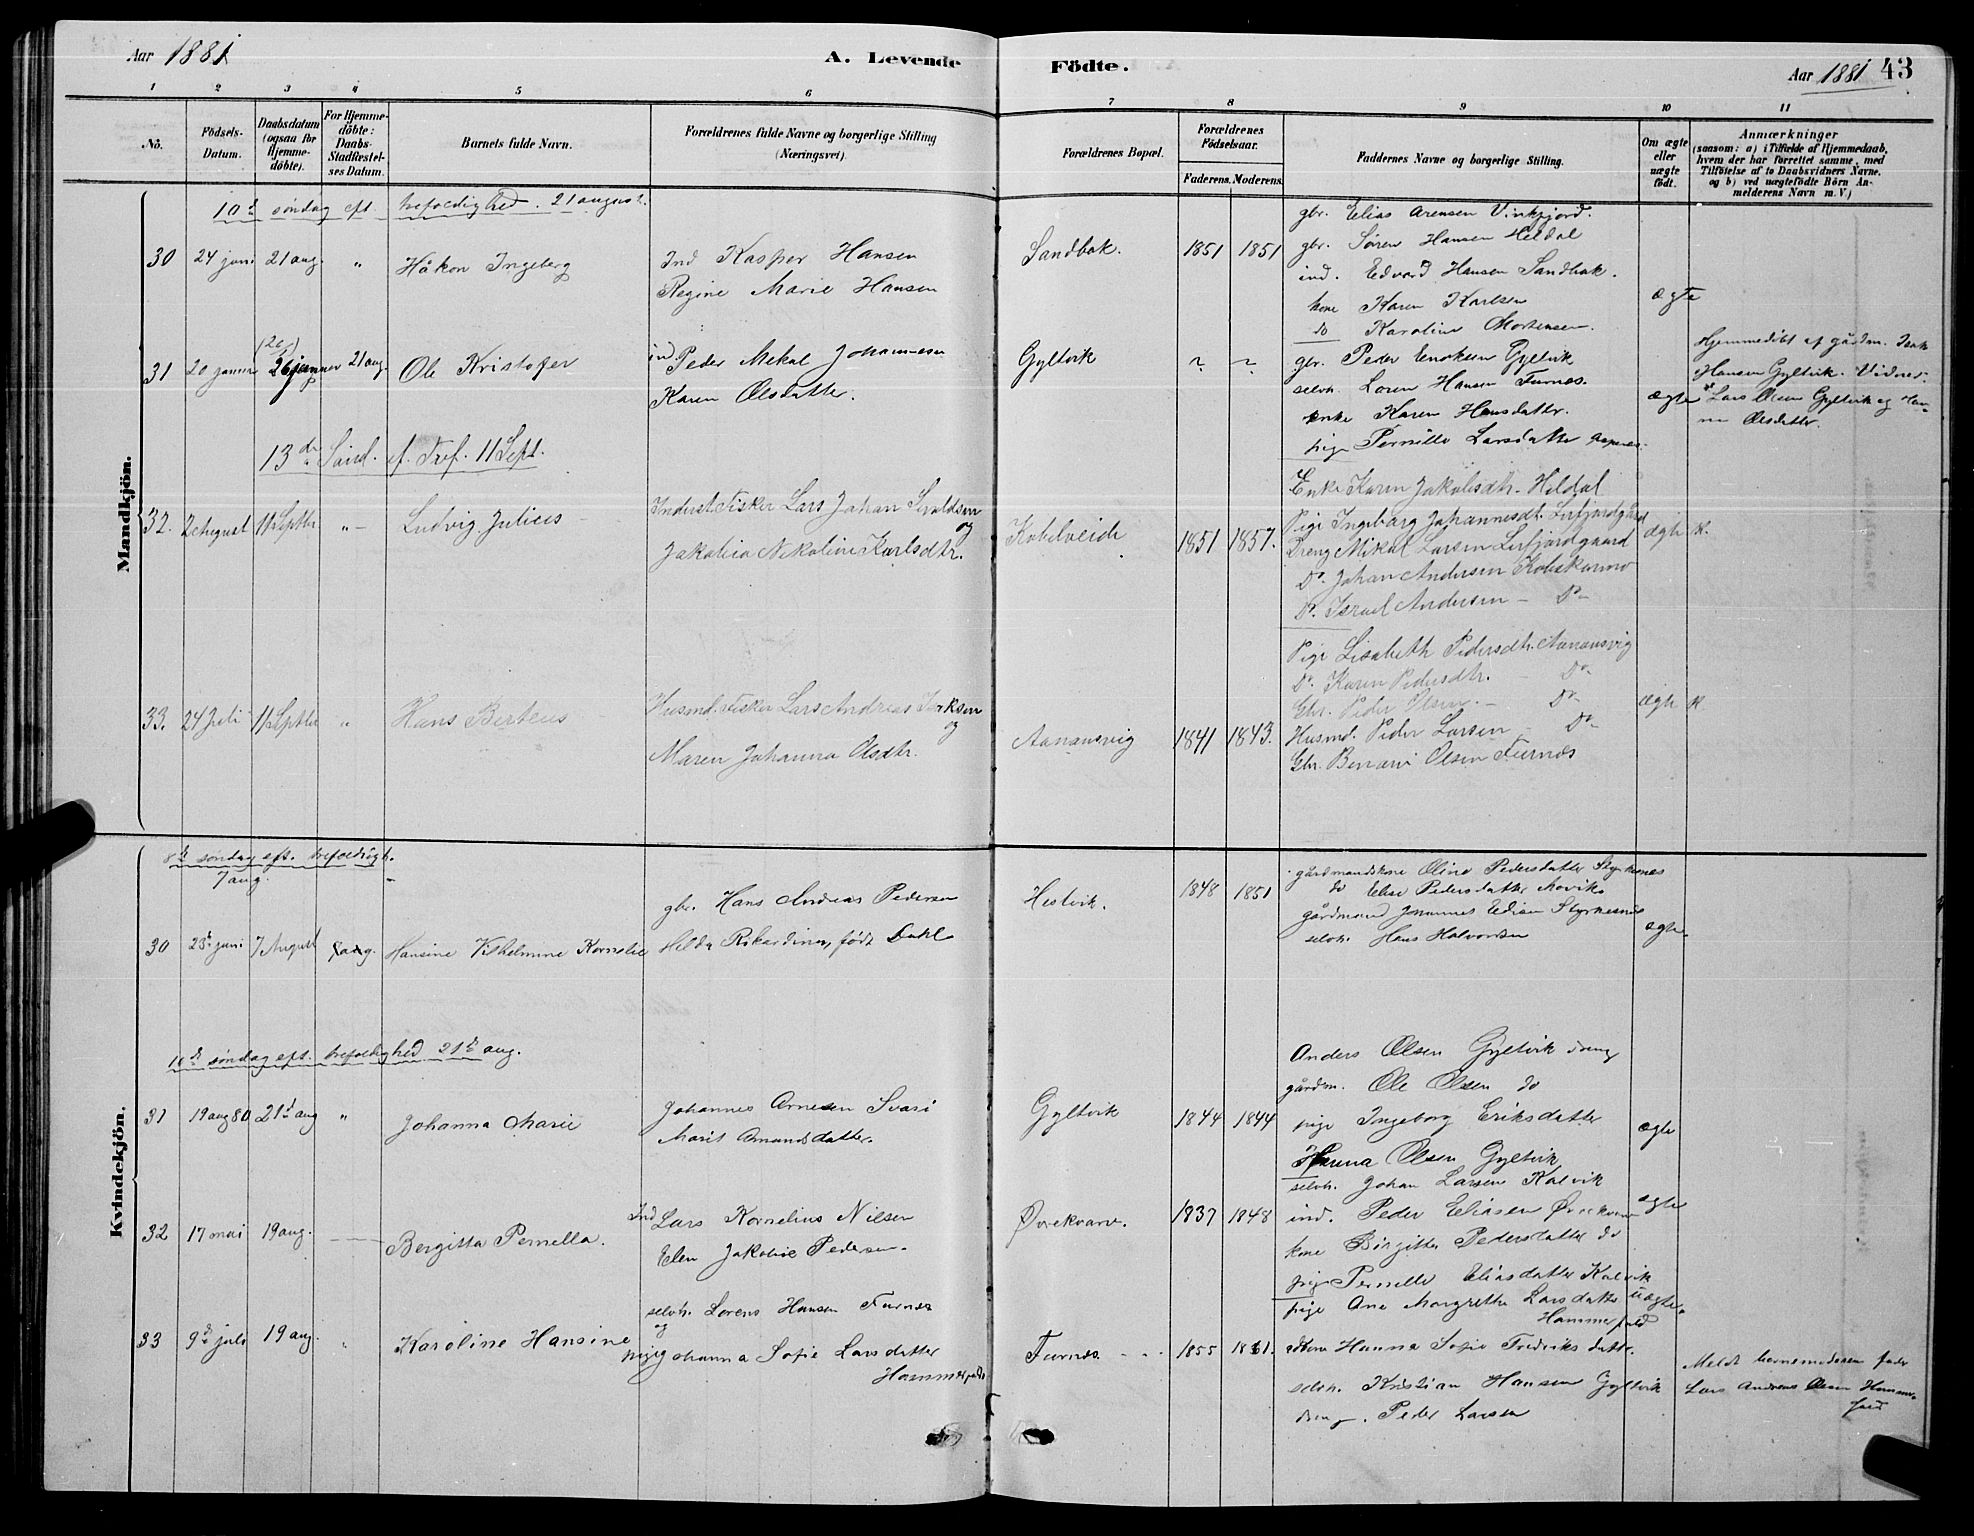 Aar 1881
A. Levende
Födte.
Aar 1881 43
1 2 3 4 5 6 7 8 9 10 11
No.
Födsels-Datum.
Daabsdatum (ogsaa for Hjemme-döbte).
For Hjemme-döbte: Daabs-Stadfæstel-ses Datum.
Barnets fulde Navn.
Forældrenes fulde Navne og borgerlige Stilling (Næringsvei).
Forældrenes Bopæl.
Forældrenes Födselsaar.
Faderens. Moderens.
Faddernes Navne og borgerlige Stilling.
Om ægte eller uægte födt.
Anmærkninger
(saasom: a) i Tilfælde af Hjemmedaab,
hvem der har forrettet samme, med
Tilföielse af to Daabsvidners Navne,
og b) ved uægtefödte Börn An-
melderens Navn m. V.)
Mandkjön.
10de søndag eft. trefoldighed. 21 august.
30 24 juni 21 aug. " Håkon Ingeberg
Ind Kasper Hansen
Regine Marie Hansen
Sandbak. 1851 1851
gbr. Elias Arensen Vinkfjord.
gbr. Søren Hansen Heldal
ind. Edvard Hansen Sandbak.
kone Karen Karlsen
do Karoline Mortensen.
ægte
31 20 januar 26 januar 21 aug. Ole Kristofer
ind. Peder Mekal Johannesen
Karen Olsdatter.
Gyltvik ~ ~
gbr. Peder Enoksen Gyltvik
selvh. Loren Hansen Furnes.
enke Karen Hansdatter.
pige Pernille Larsdatter
ægte
Hjemmedöbt af gårdm. Isak
Hansen Gyltvik. Vidner:
Lars Olsen Gyltvik og Han-
na Olsdatter.
13de Sönd. ef. Tref. 11 Sept.
32. 2 August 11 Septbr "– Ludvig Julius –
Inderst Fisker Lars Johan Sivaldsen
og
Jakobia Nikoline Karlsdtr.
Kobelveide 1851 1857.
Enke Karen Jakobsdtr. Heldal
Pige Ingeborg Johannesdt. Leifjordgård
Dreng Mikal Larsen Leifjordgaard
Do. Johan Andersen Kobskarmo
Do. Israel Andersen – Do –
ægte K.
33. 24 Juli 11 Septbr " Hans Berteus
Husmd. Fisker Lars Andreas Isaksen
og
Maren Johanna Olsdtr.
Aanansvig 1841 1843.
Pige Lisabeth Pedersdtr. Aanansvig
Do. Karen Pedersdtr. – Do –
Gbr. Peder Olsen. – Do –
Husmd. Peder Larsen – Do –
Gbr. Benani Olsen Furnæs
ægte K
Kvindekjön.
8de søndag eft. trefoldigh.
7 aug.
30 23de juni 7 August 8 aug. Hansine Vilhelmine Kornelie
gbr. Hans Andreas Pedersen
Hilda Rikardina, født Dahl
Hestvik. 1848 1851
gårdmandskone Oline Pedersdatter Styrkesnes
do Elise Pedersdatter Movik
gårdmand Johannes Edisen Styrkesnes
selvh. Hans Halvorsen
ægte.
10de søndag eft. trefoldighed 21de aug.
31 19 aug 80 21de aug " Johanna Marie
Johannes Arnesen Svarí
Marit Amundsdatter.
Gyltvik 1844 1844
Anders Olsen Gyltvik dreng
gårdm. Ole Olsen do
pige Ingeborg Eriksdatter
Hanna Olsen Gyltvik
selvh. Johan Larsen Kalvik
ægte
32 17 mai 19 aug. Bergitta Pernella.
Ind Lars Kornelius Nilsen
Elen Jakobie Pedersen.
Øvrekvarv. 1837 1848
ind. Peder Eliasen Øvrekvarv
kone Birgitte Pedersdatter do
pige Pernille Eliasdatter Kalvik
ægte
33 9de juli 19 aug. " Karoline Hansine
selvh. Lorens Hansen Furnes
og
pige Johanna Sofie Larsdatter
Hammerfald
Furnes. 1855 1861.
pige Ane Margrethe Larsdatter
Hammerfald
Hanna Sofie Fredriksdatter.
selvh. Kristian Hansen Gyltvik
dreng. Peder Larsen
uægte.
Meldt barnemoderens fader
Lars Andreas Olsen Hammer-
fald